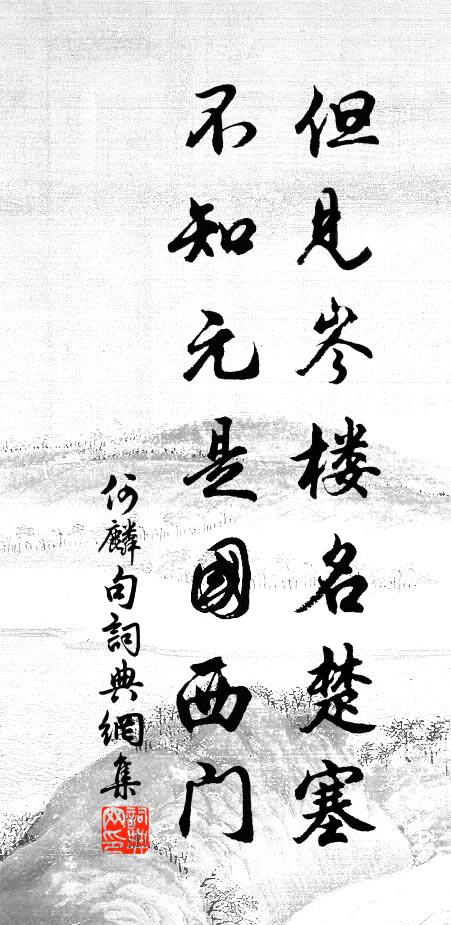 但見岑楼名楚塞
不知元是國西门
何麟句詞典網集
詞典网印